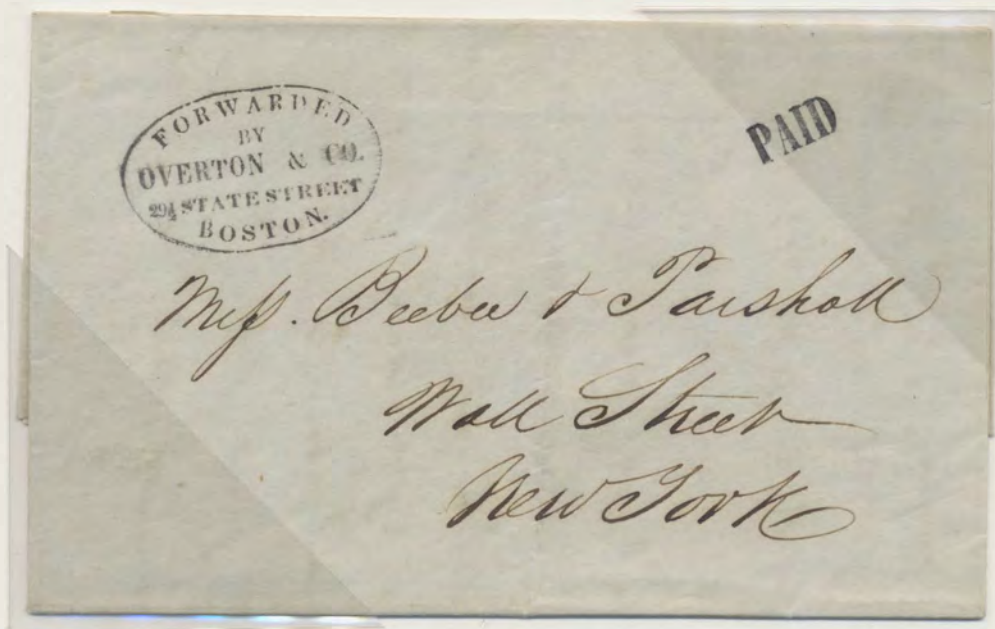 FORWARDED
BY
OVERTON & CO.
29½ STATE STREET
BOSTON.
PAID
Mess. Beebee & Parshall
Wall Street
New York